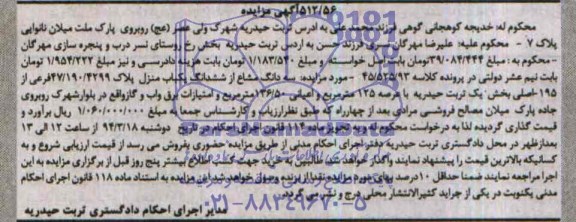 ۵۱۲/۵۶آگهی مزایده
محکوم له: خدیجه کوهجانی گوهی فرزند علی به آدرس تربت حیدریه شهرک ولی عصر (عج) روبروی پارک ملت میلان نانوایی
پلاک ۷ - محکوم علیه: علیرضا مهرگان فرزند حسن به آدرس تربت حیدریه بخش رخ روستای نسر درب و پنجره سازی مهرگان
-محکوم به: مبلغ ۳۹/۰۸۴/۴۴۴تومان بابت اصل خواسته و مبلغ ۱/۱۸۳/۵۳۰ تومان بابت هزینه دادرسی و نیز مبلغ ۱/۹۵۴/۲۲۲ تومان
بابت نیم عشر دولتی در پرونده کلاسه ۴۵/۵۳۵/۹۳ - مورد مزایده: سه دانگ مشاع از ششدانگ یکباب منزل پلاک ۴۷/۱۹۰/۴۲۹۹فرعی از
۱۹۵-اصلی بخش یک تربت حیدریه با عرصه ۱۲۵ مترمربع و اعیانی ۱۳۶/۵۰مترمربع و امتیازات برق وآب و گازواقع در بلوارشهرک روبروی
جاده پارک میلان مصالح فروشی مرادی بعد از چهارراه که طبق نظرارزیاب و کارشناس جمعا به مبلغ ۱/۰۶۰/۰۰۰/۰۰۰ ریال برآورد و
قیمت گذاری گردیده لذا به درخواست محکوم له و به تجویز ماده ۱۱۴ قانون اجرای احکام در تاریخ دوشنبه ۹۴/۳/۱۸ از ساعت ۱۲ الی ۱۳
بعدازظهر در محل دادگستری تربت حیدریه دفتر اجرای احکام مدنی از طریق مزایده حضوری بفروش می رسد از قیمت ارزیابی شروع و به
کسانیکه بالاترین قیمت را پیشنهاد نمایند واگذار خواهد شد طالبین به خرید جهت کسب اطلاع بیشتر پنج روز قبل از برگزاری مزایده به این
اجرا مراجعه نمایند ضمنا حداقل ۱۰درصد بهای مورد مزایده نقدا از برنده وصول خواهد شد این مزایده به استناد ماده ۱۱۸ قانون اجرای احکام
مدنی یکنوبت در یکی از جراید کثیرالانتشار محلی درج و نشر می گردد.
مدیر اجرای احکام دادگستری تربت حیدریه
۰۲۱-۸۸۳۴۹۶۷۰-۵